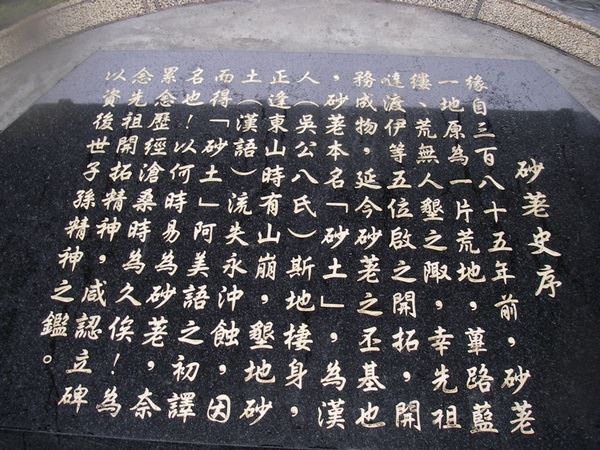 砂荖史序
緣自三百八十五年前，砂荖
一地原為一片荒地，蓽路藍
縷、荒無人墾之陬，幸先祖
噠渡伊等五位啟之開拓，開
務成物，延今砂荖之丕基也
，砂荖本名「砂土」，為漢
人（吳公八氏）斯地棲身，
正逢東山時有山崩，墾地砂
土（漢語）流失永沖蝕，因
而得「砂土」阿美語之初譯
名也！以何時易為砂荖，奈
累念歷經滄桑時為久俟！為
念先祖開拓精神，咸認立碑
以資後世子孫精神之鑑。